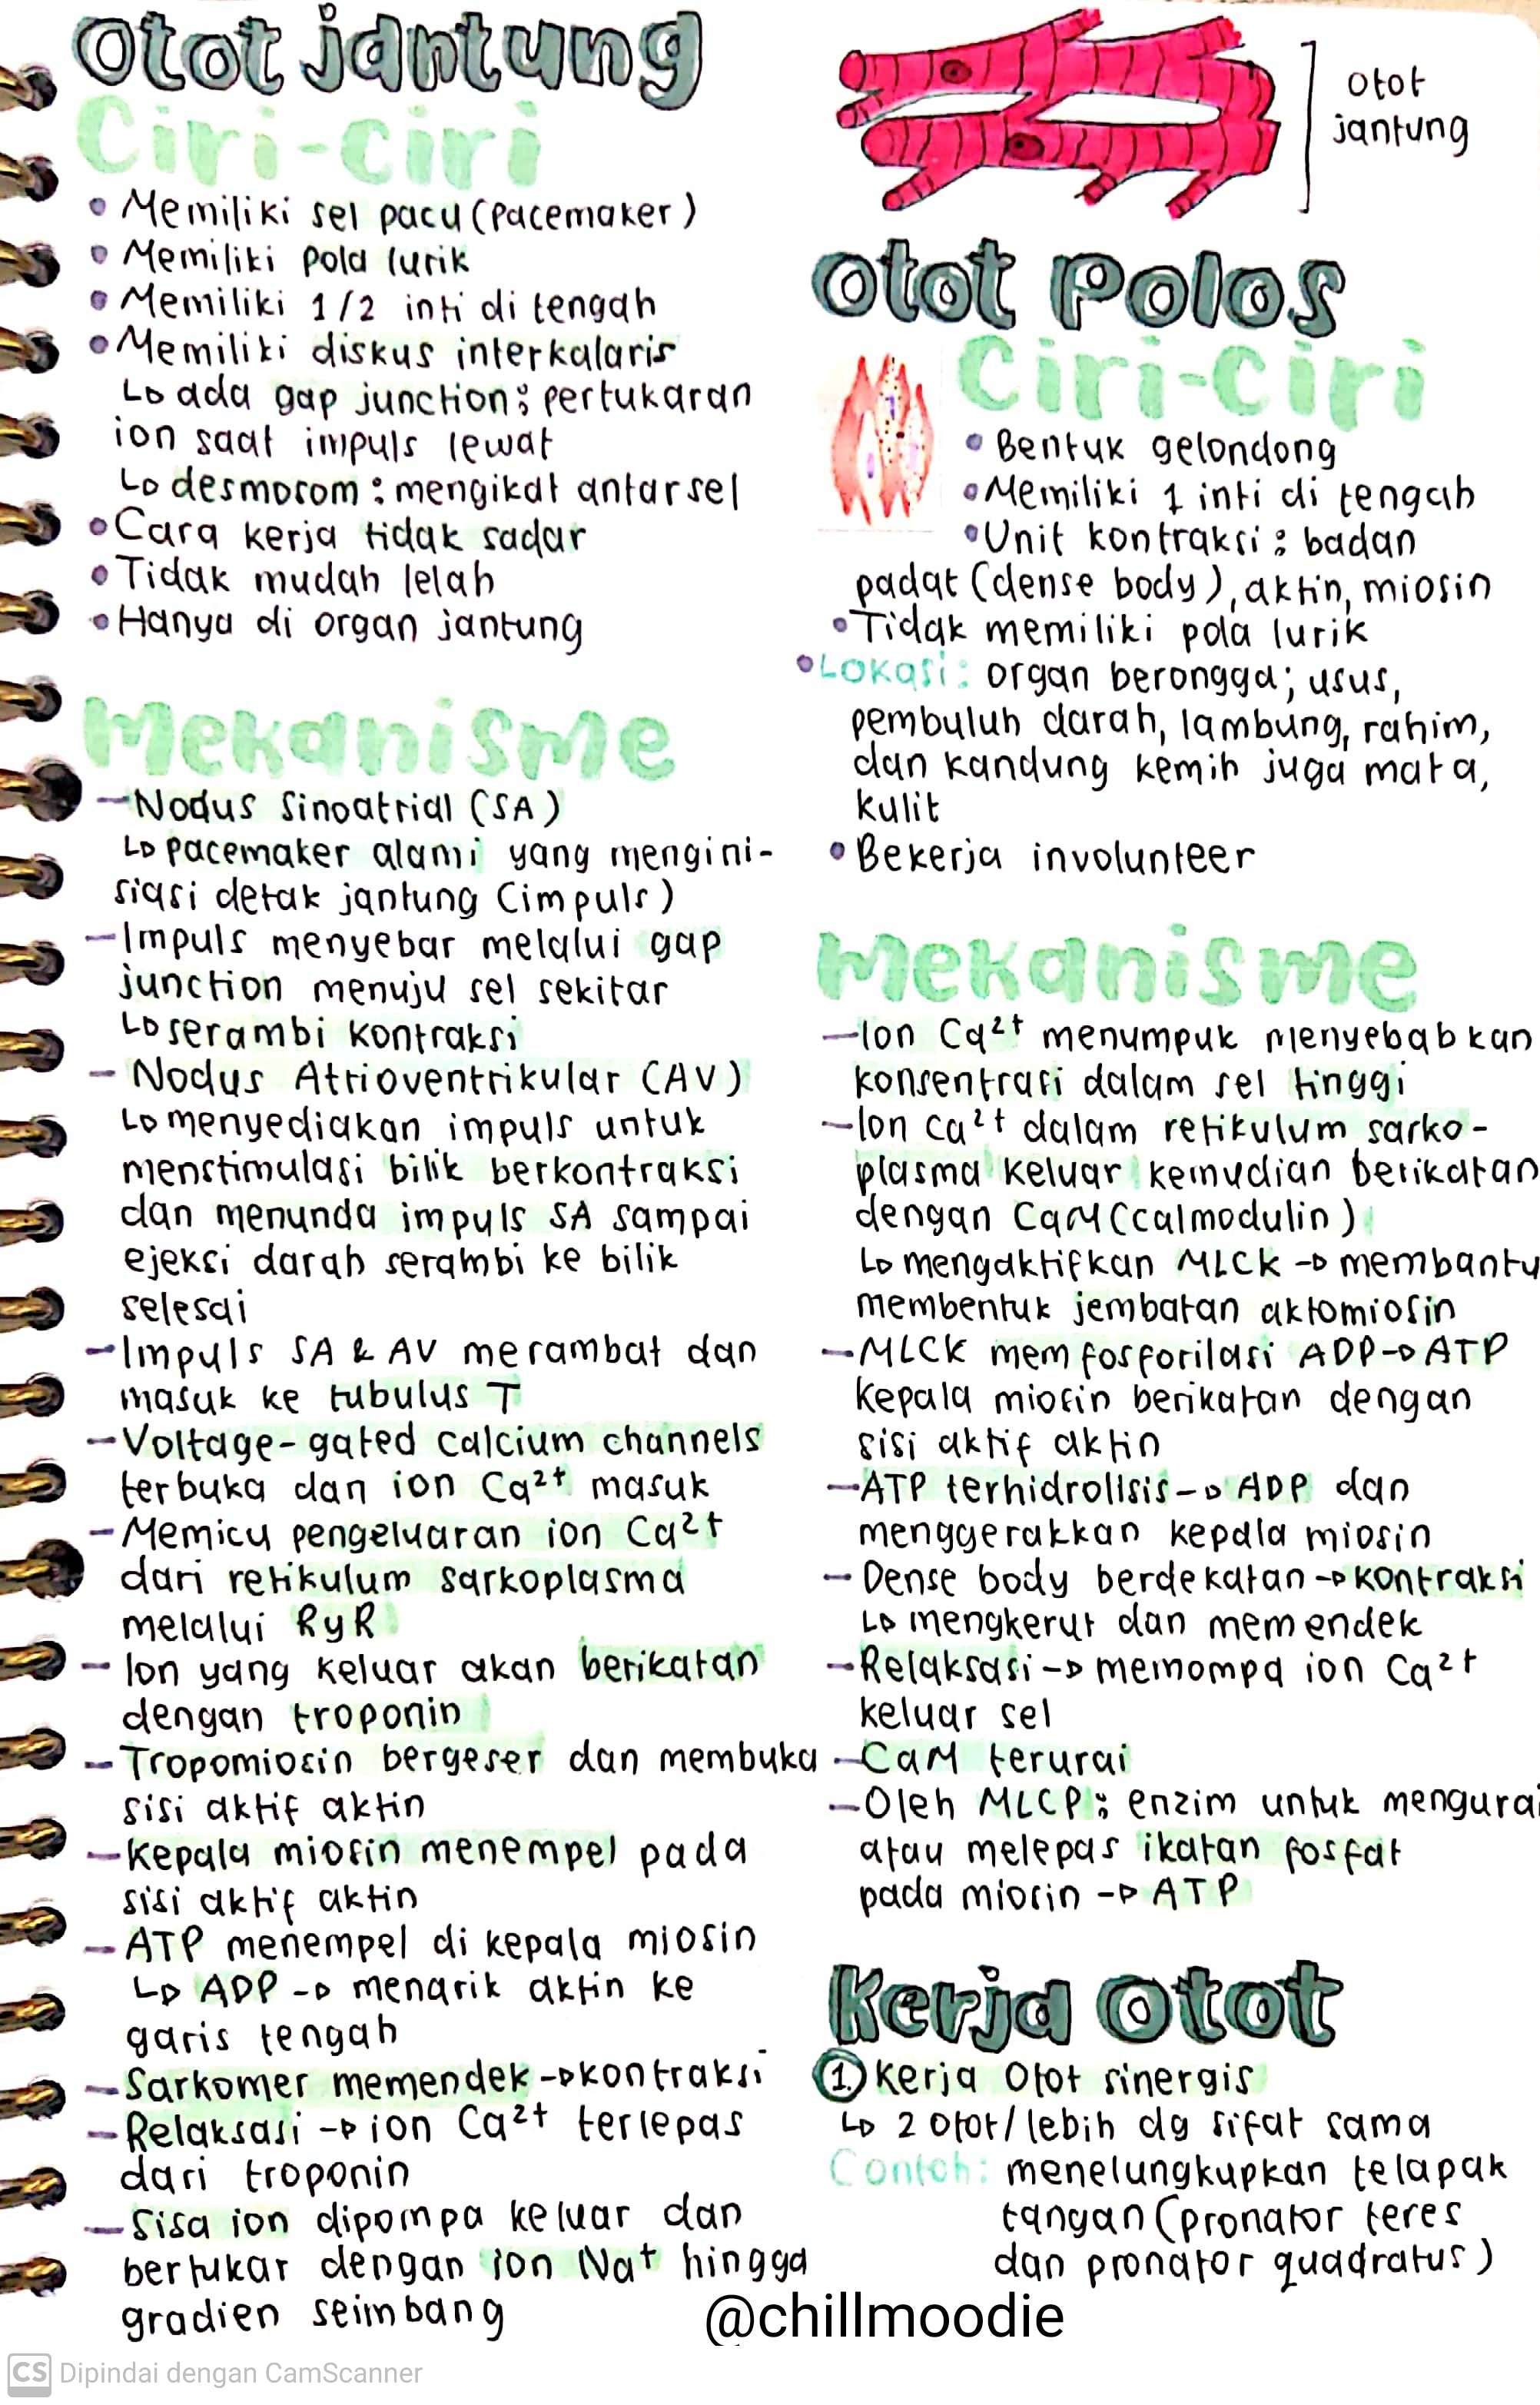 Otot jantung
Ciri-ciri
• Memiliki sel pacu (pacemaker)
• Memiliki pola lurik
• Memiliki 1/2 inti di tengah
• Memiliki diskus interkalaris
↳ ada gap junction: pertukaran
ion saat impuls lewat
↳ desmosom: mengikat antar sel
• Cara kerja tidak sadar
• Tidak mudah lelah
• Hanya di organ jantung
Mekanisme
- Nodus Sinoatrial (SA)
↳ pacemaker alami yang mengini-
siasi detak jantung (impuls)
- Impuls menyebar melalui gap
junction menuju sel sekitar
↳ serambi kontraksi
- Nodus Atrioventrikular (AV)
↳ menyediakan impuls untuk
menstimulasi bilik berkontraksi
dan menunda impuls SA sampai
ejeksi darah serambi ke bilik
selesai
- Impuls SA & AV merambat dan
masuk ke tubulus T
- Voltage-gated calcium channels
terbuka dan ion Ca²⁺ masuk
- Memicu pengeluaran ion Ca²⁺
dari retikulum sarkoplasma
melalui RyR
- Ion yang keluar akan berikatan
dengan troponin
- Tropomiosin bergeser dan membuka
sisi aktif aktin
- Kepala miosin menempel pada
sisi aktif aktin
- ATP menempel di kepala miosin
↳ ADP → menarik aktin ke
garis tengah
- Sarkomer memendek → kontraksi
- Relaksasi → ion Ca²⁺ terlepas
dari troponin
- Sisa ion dipompa keluar dan
bertukar dengan ion Na⁺ hingga
gradien seimbang
otot
jantung
Otot Polos
Ciri-Ciri
• Bentuk gelondong
• Memiliki 1 inti di tengah
• Unit kontraksi: badan
padat (dense body), aktin, miosin
• Tidak memiliki pola lurik
• Lokasi: organ berongga; usus,
pembuluh darah, lambung, rahim,
dan kandung kemih juga mata,
kulit
• Bekerja involunteer
Mekanisme
- Ion Ca²⁺ menumpuk menyebabkan
konsentrasi dalam sel tinggi
- Ion Ca²⁺ dalam retikulum sarko-
plasma keluar kemudian berikatan
dengan CaM (calmodulin)
↳ mengaktifkan MLCK → membantu
membentuk jembatan aktomiosin
- MLCK memfosforilasi ADP → ATP
Kepala miosin berikatan dengan
sisi aktif aktin
- ATP terhidrolisis → ADP dan
menggerakkan kepala miosin
- Dense body berdekatan → kontraksi
↳ mengkerut dan memendek
- Relaksasi → memompa ion Ca²⁺
keluar sel
- CaM terurai
- Oleh MLCP: enzim untuk mengurai
atau melepas ikatan fosfat
pada miosin → ATP
Kerja Otot
1. Kerja Otot sinergis
↳ 2 otot/lebih dg sifat sama
Contoh: menelungkupkan telapak
tangan (pronator teres
dan pronator quadratus)
@chillmoodie
CS Dipindai dengan CamScanner